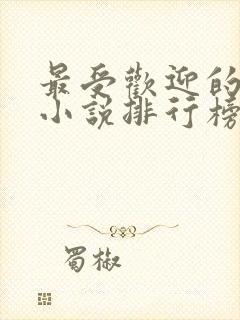 最受歡迎的
小說排行榜
蜀椒